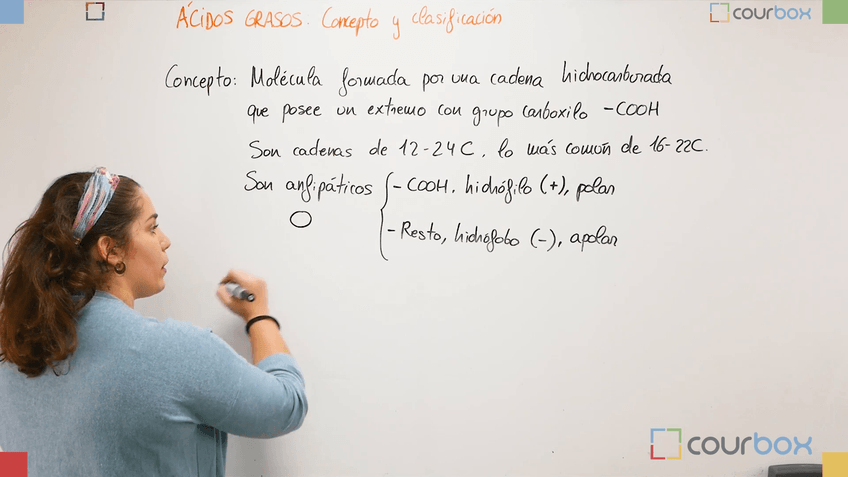 ÁCIDOS GRASOS: Concepto y clasificación
courbox
Concepto: Molécula formada por una cadena hidrocarburada
que posee un extremo con grupo carboxilo -COOH
Son cadenas de 12-24C, lo más común de 16-22C.
Son anfipáticos { -COOH, hidrófilo (+), polar
-Resto, hidrófobo (-), apolar
courbox